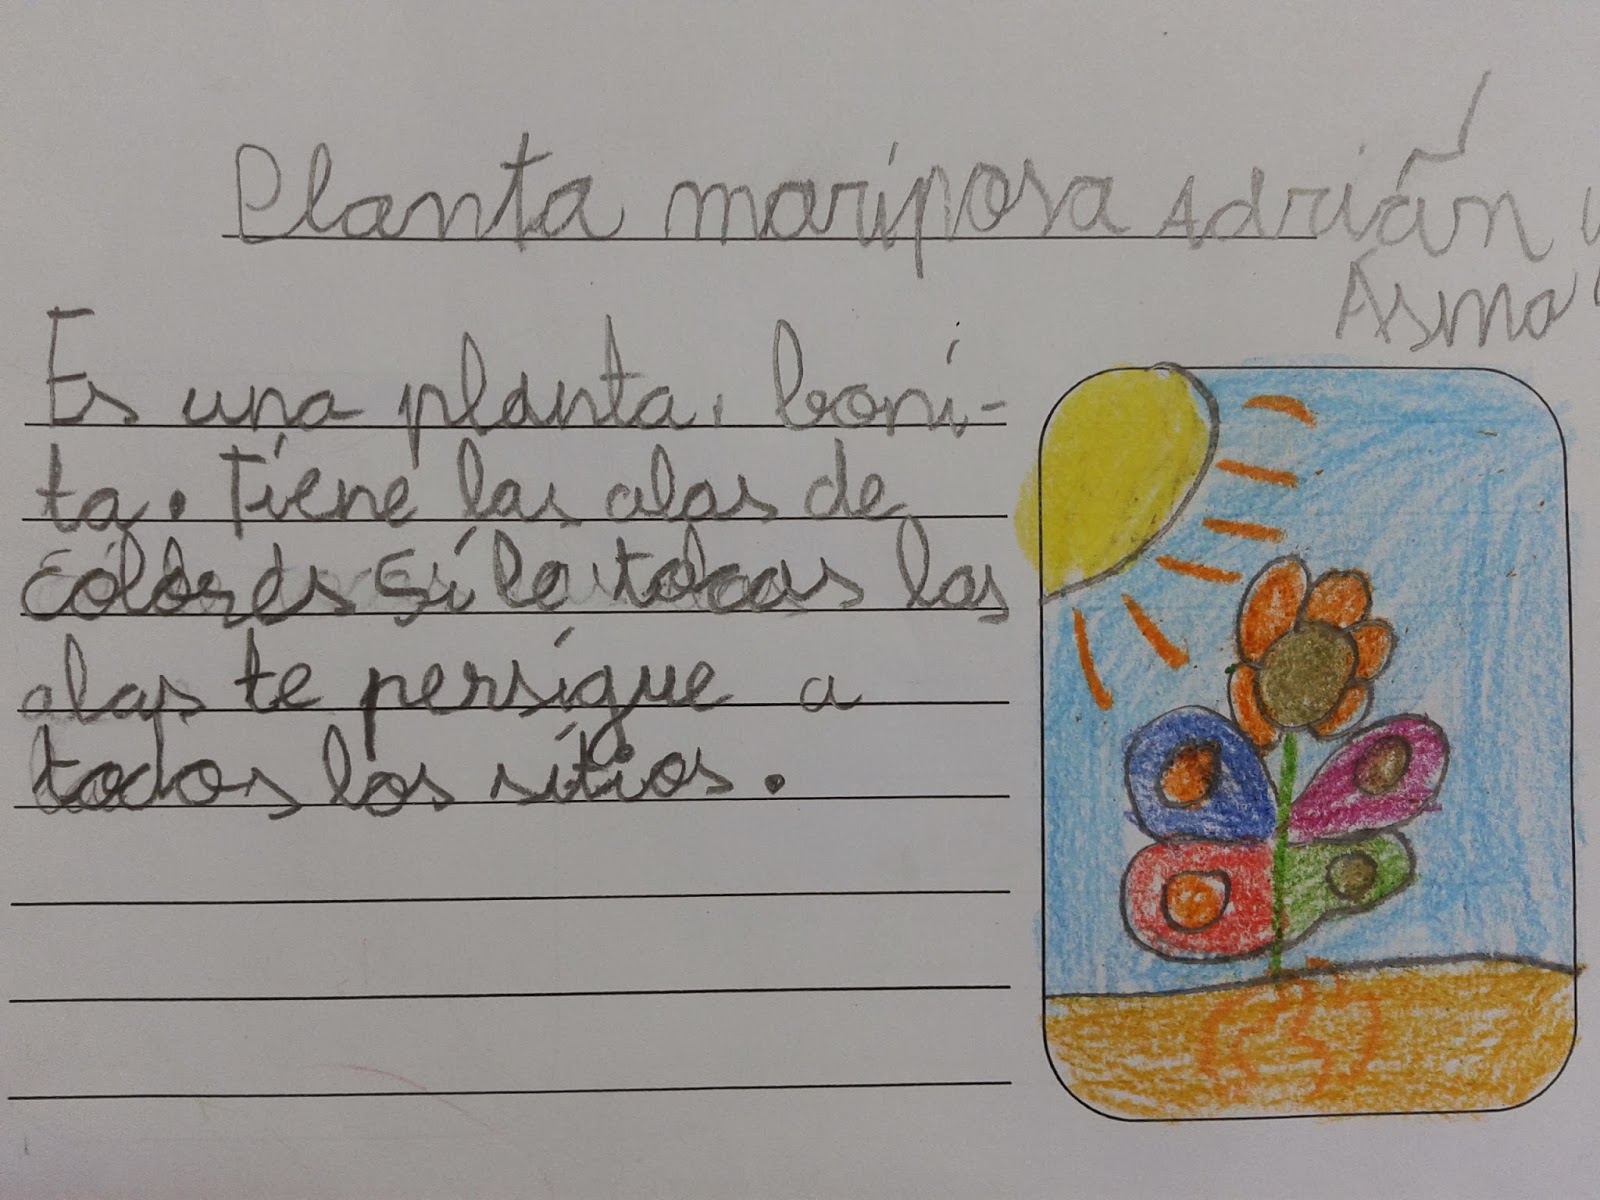 Planta mariposa Adrián y
Asma
Es una planta, boni-
ta. Tiene las alas de
colores si le tocas las
alas te persigue a
todos los sitios.